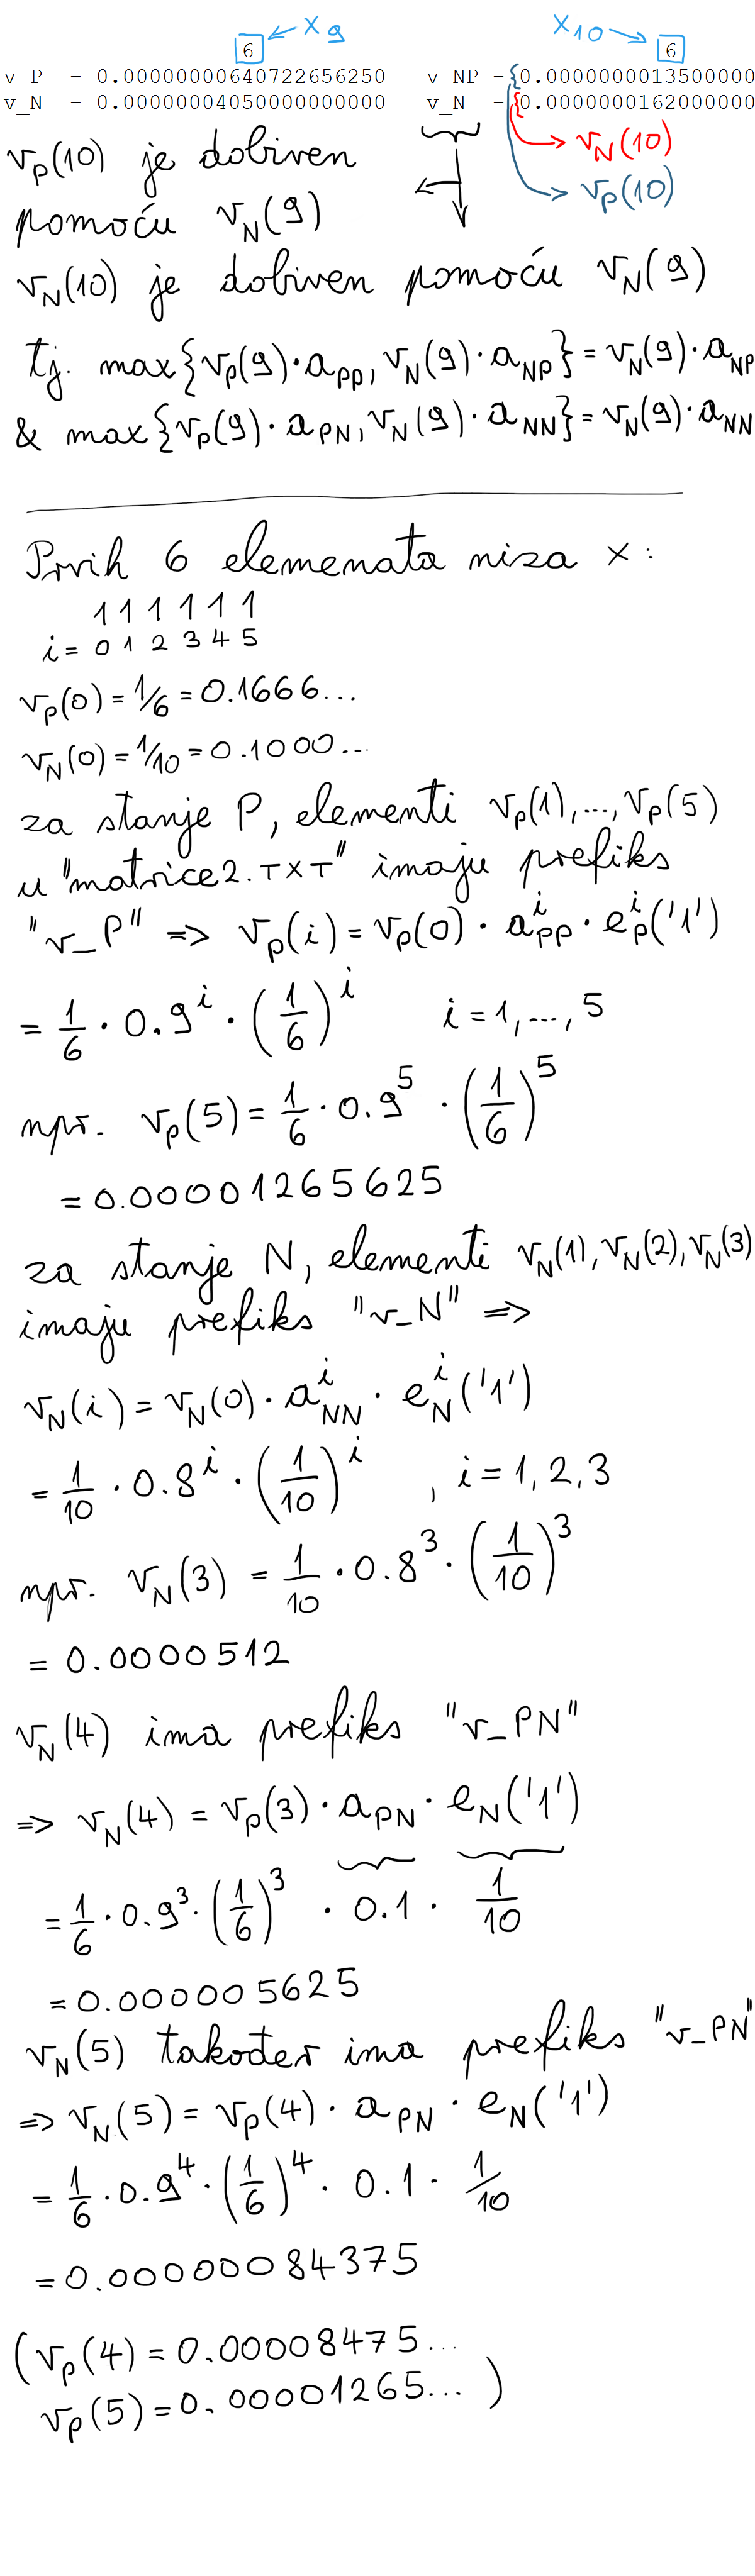 x₉ x₁₀
6 6
v_P - 0.00000000640722656250 v_NP - {0.0000000013500000
v_N - 0.00000004050000000000 v_N - {0.0000000162000000
v_P(10) je dobiven → v_N(10)
→ v_P(10)
pomoću v_N(9)
v_N(10) je dobiven pomoću v_N(9)
tj. max{v_P(9)·a_PP, v_N(9)·a_NP} = v_N(9)·a_NP
& max{v_P(9)·a_PN, v_N(9)·a_NN} = v_N(9)·a_NN
Prvih 6 elemenata niza x:
1 1 1 1 1 1
i = 0 1 2 3 4 5
v_P(0) = 1/6 = 0.1666...
v_N(0) = 1/10 = 0.1000...
za stanje P, elementi v_P(1),...,v_P(5)
u "matrice2.TXT" imaju prefiks
"v_P" => v_P(i) = v_P(0) · a_PP^i · e_P^i('1')
= 1/6 · 0.9^i · (1/6)^i i = 1,...,5
npr. v_P(5) = 1/6 · 0.9^5 · (1/6)^5
= 0.00001265625
za stanje N, elementi v_N(1), v_N(2), v_N(3)
imaju prefiks "v_N" =>
v_N(i) = v_N(0) · a_NN^i · e_N^i('1')
= 1/10 · 0.8^i · (1/10)^i , i = 1, 2, 3
npr. v_N(3) = 1/10 · 0.8^3 · (1/10)^3
= 0.0000512
v_N(4) ima prefiks "v_PN"
=> v_N(4) = v_P(3) · a_PN · e_N('1')
= 1/6 · 0.9^3 · (1/6)^3 · 0.1 · 1/10
= 0.000005625
v_N(5) također ima prefiks "v_PN"
=> v_N(5) = v_P(4) · a_PN · e_N('1')
= 1/6 · 0.9^4 · (1/6)^4 · 0.1 · 1/10
= 0.00000084375
(v_P(4) = 0.00008475...
v_P(5) = 0.00001265... )